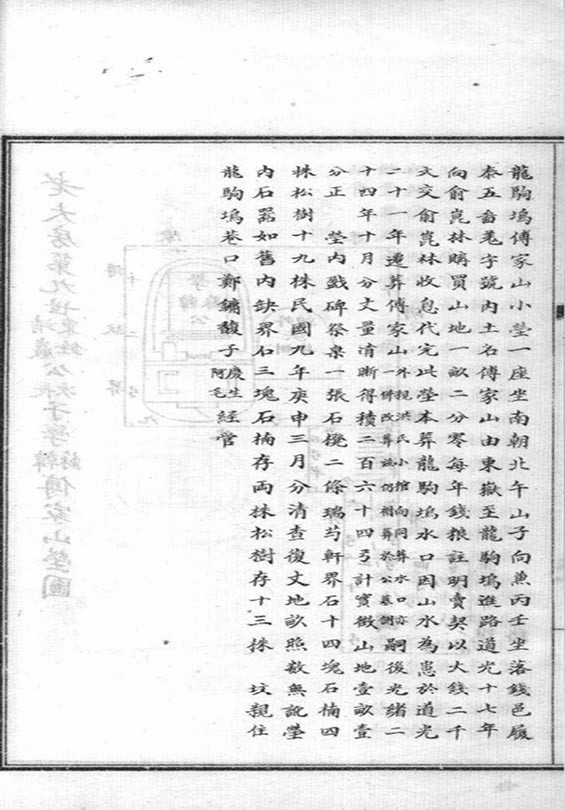 龍駒塢傅家山小塋一座坐南朝北午山子向兼丙壬坐落錢邑履
泰五畜羗字號內土名傅家山由東嶽至龍駒塢進路道光十七年
向俞崑林購買山地一畝二分零每年錢粮註明賣契以大錢二千
文交俞崑林收息代完此塋本葬龍駒塢水口因山水為患於道光
二十一年遷葬傅家山一外親洪氏小棺向同葬水口亦一併改葬茲仍相葬於公墓側嗣後光緒二
十四年十月分丈量清晰得積二百六十四弓計實徵山地壹畝壹
分正　塋內戤碑祭桌一張石櫈二條瑞芍軒界石十四塊石楠四
株松樹十九株民國九年庚申三月分清查復丈地畝照数無訛塋
內石器如舊內缺界石三塊石楠存両株松樹存十三株　坟親住
龍駒塢巷口鄭鏽馥子慶生阿毛經管